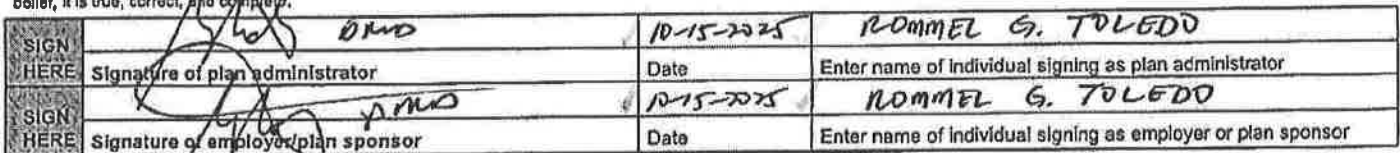 belief, it is true, correct, and complete.
SIGN HERE DMD 10-15-2025 ROMMEL G. TOLEDO
Signature of plan administrator Date Enter name of individual signing as plan administrator
SIGN HERE DMD 10-15-2025 ROMMEL G. TOLEDO
Signature of employer/plan sponsor Date Enter name of individual signing as employer or plan sponsor